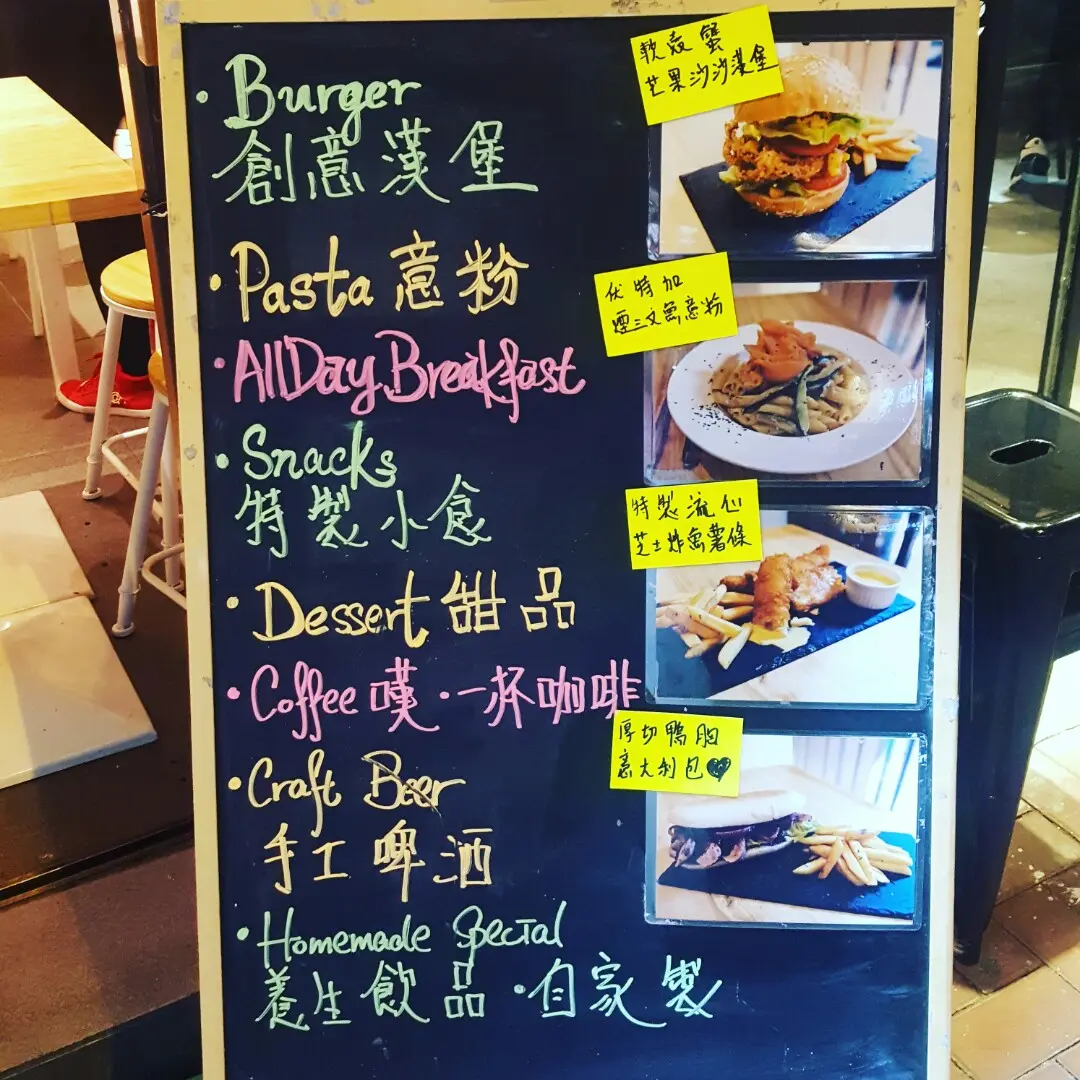 · Burger
創意漢堡
· Pasta 意粉
· All Day Breakfast
· Snacks
特製小食
· Dessert 甜品
· Coffee 嘆·一杯咖啡
· Craft Beer
手工啤酒
· Homemade Special
養生飲品·自家製
軟殼蟹
芒果沙沙漢堡
伏特加
煙三文魚意粉
特製流心
芝士炸魚薯條
厚切鴨胸
意大利包♥